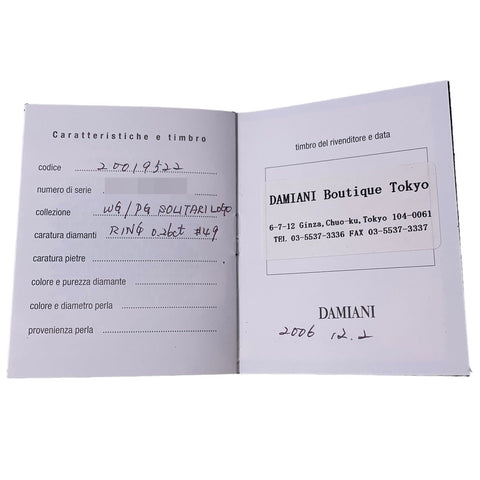 Caratteristiche e timbro
codice 20019522
numero di serie
collezione WG/PG SOLITARI LOGO
caratura diamanti RING 0.26ct #49
caratura pietre
colore e purezza diamante
colore e diametro perla
provenienza perla
timbro del rivenditore e data
DAMIANI Boutique Tokyo
6-7-12 Ginza, Chuo-ku, Tokyo 104-0061
TEL 03-5537-3336 FAX 03-5537-3337
DAMIANI
2006 12.2